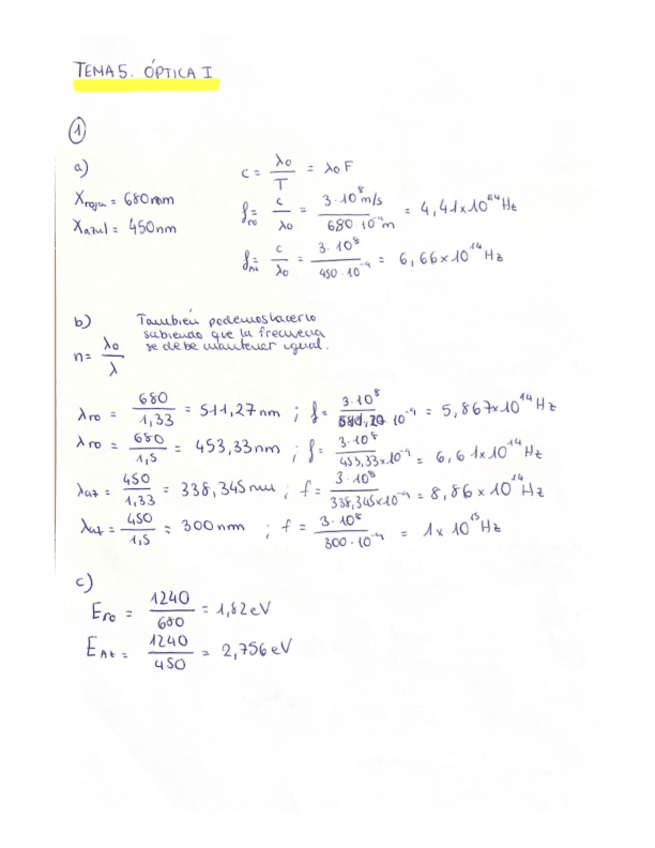 TEMA 5. ÓPTICA I
①
a)
c = λ0/T = λ0 F
Xroja = 680nm
fro = c/λ0 = 3·10⁸ m/s / 680·10⁻⁹ m = 4,41x10¹⁴ Hz
Xazul = 450nm
c/λ0 = 3·10⁸ / 450·10⁻⁹ = 6,66x10¹⁴ Hz
b) También podemos hacerlo
sabiendo que la frecuencia
se debe mantener igual.
n = λ0/λ
λro = 680/1,33 = 511,27nm ; f = 3·10⁸ / 10⁻⁹ = 5,867x10¹⁴ Hz
λro = 680/1,5 = 453,33nm ; f = 3·10⁸ / 453,33x10⁻⁹ = 6,61x10¹⁴ Hz
λaz = 450/1,33 = 338,345nm ; f = 3·10⁸ / 338,345x10⁻⁹ = 8,86x10¹⁴ Hz
λaz = 450/1,5 = 300nm ; f = 3·10⁸ / 300·10⁻⁹ = 1x10¹⁵ Hz
c)
Ero = 1240/680 = 1,82eV
EAz = 1240/450 = 2,756eV